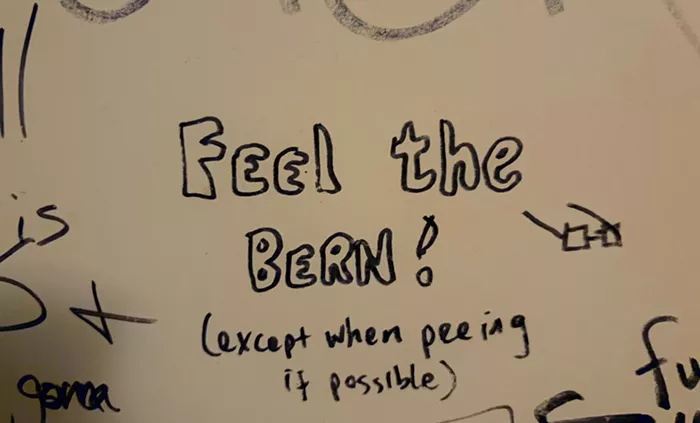 is
Feel the
BERN!
(except when peeing
if possible)
gonna